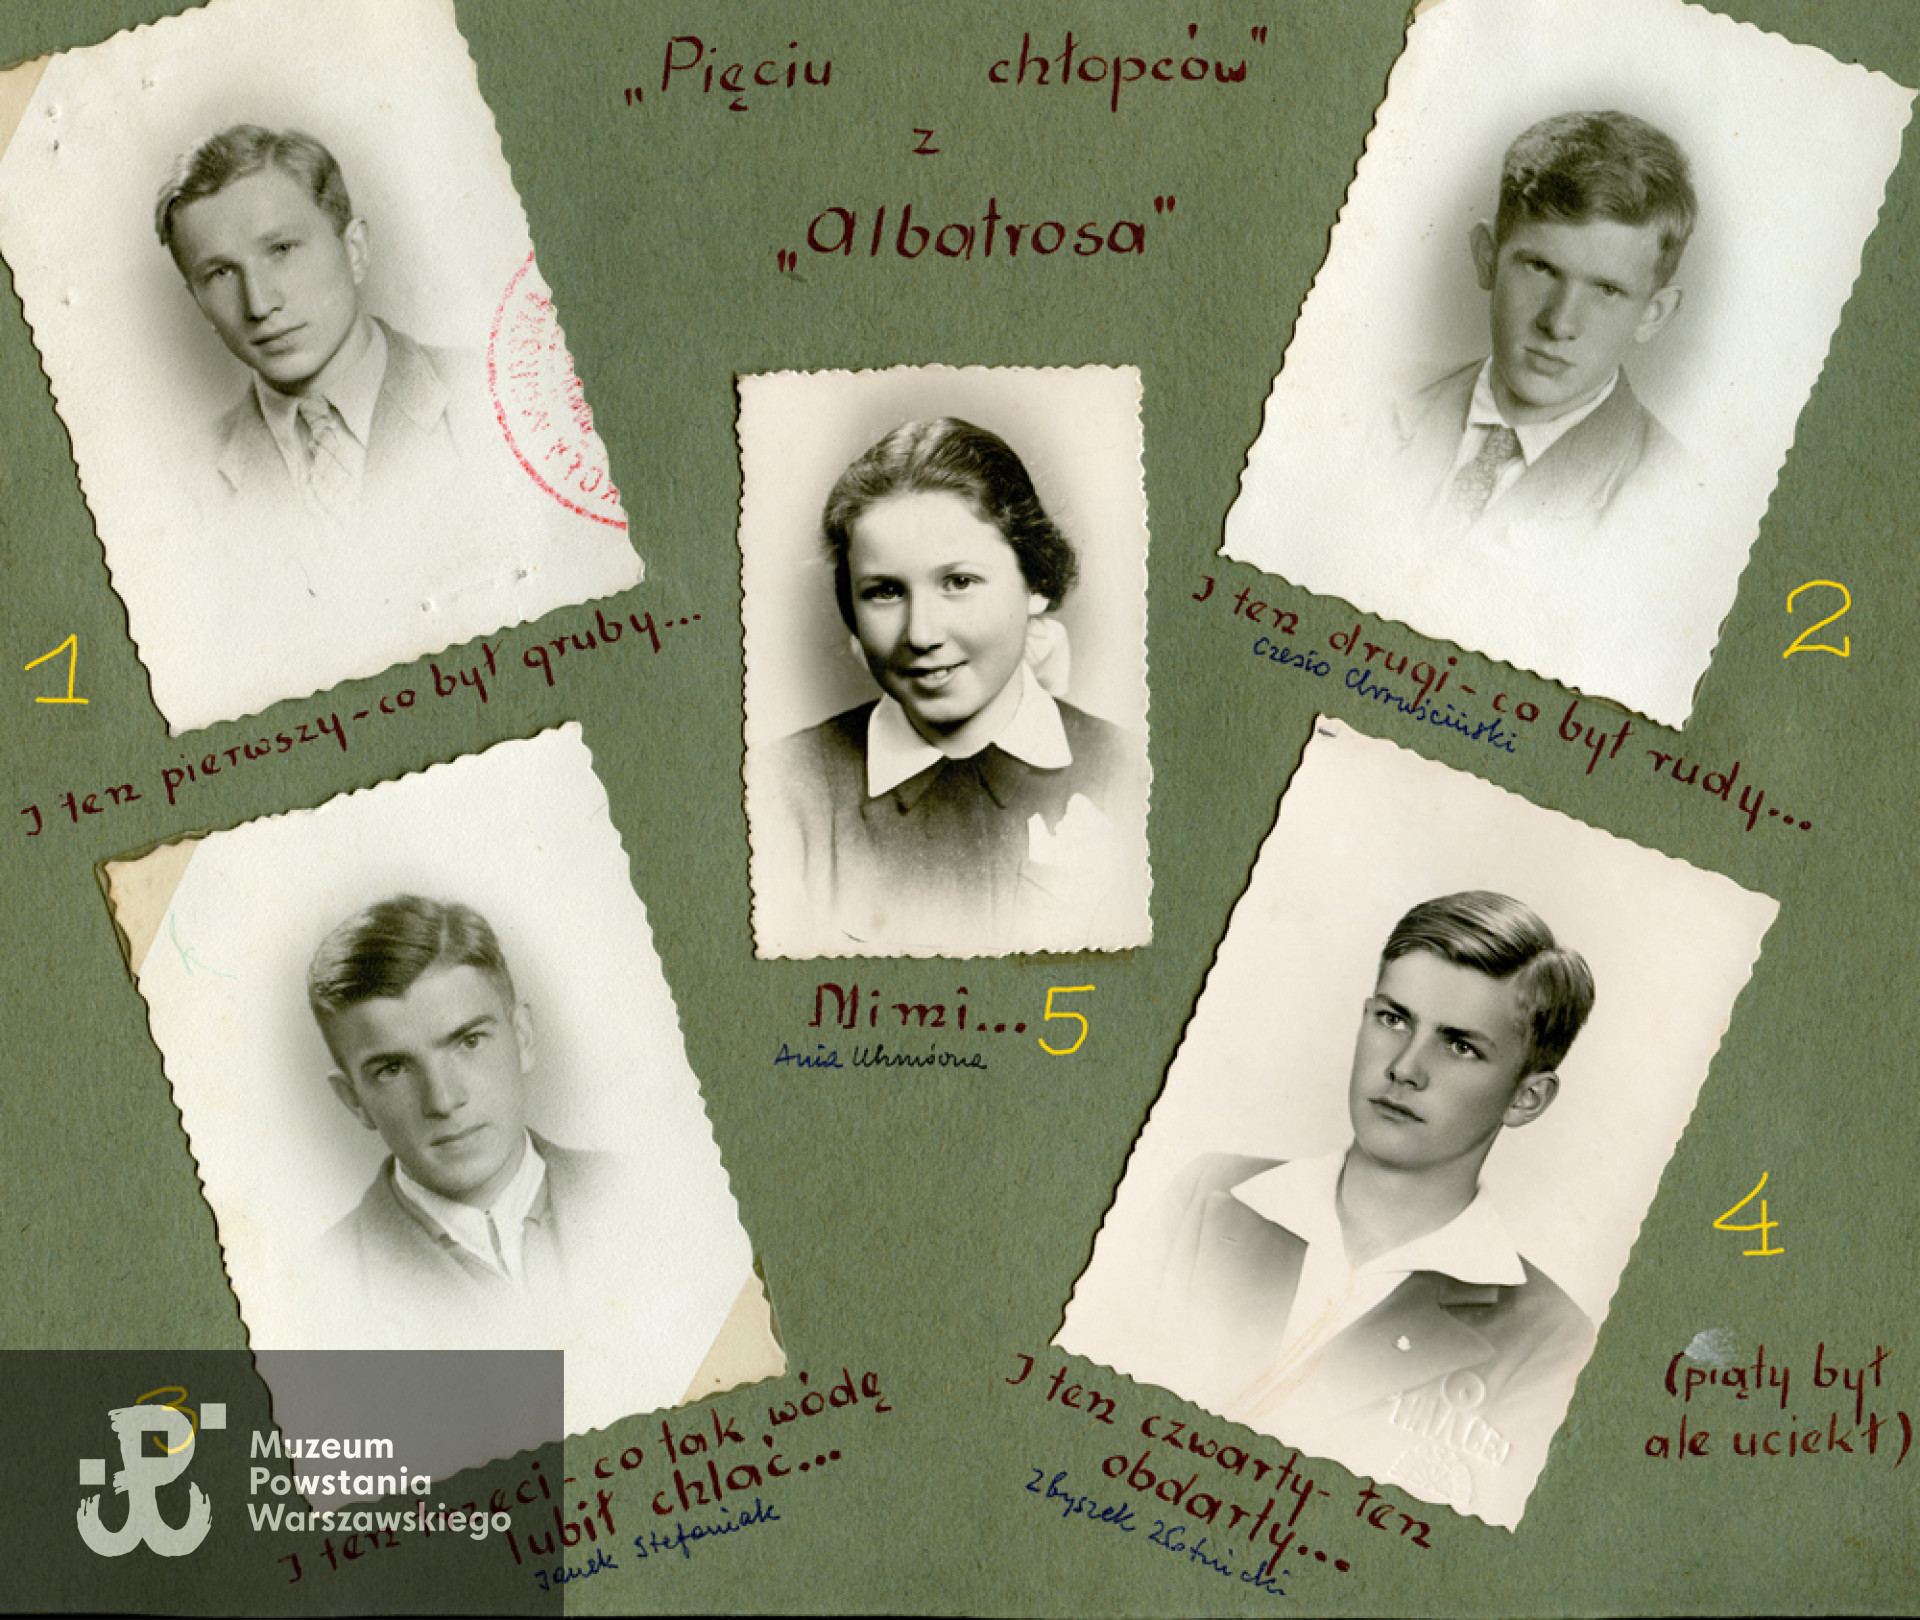 „Pięciu chłopców"
z
„Albatrosa"
I ten pierwszy-co był gruby...
1
I ten drugi-co był rudy...
Czesio
2
Mimi...
5
Ania
I ten trzeci-co tak wódę
lubił chlać...
Janek Stefaniak
3
I ten czwarty-ten
obdarty...
Zbyszek Złotnicki
4
(piąty był
ale uciekł)
Muzeum
Powstania
Warszawskiego